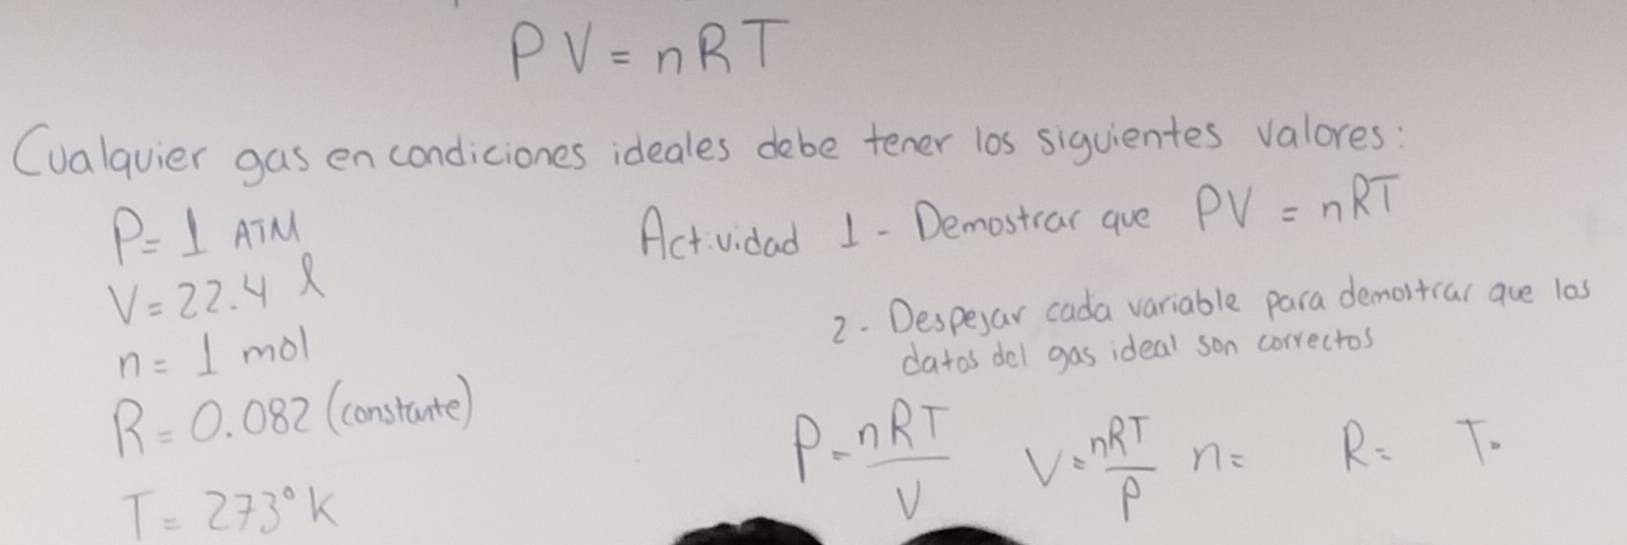 PV = nRT
Cualquier gas en condiciones ideales debe tener los siguientes valores:
P = 1 ATM
V = 22.4 l
n = 1 mol
R = 0.082 (constante)
T = 273° K
Actividad 1 - Demostrar que PV = nRT
2 - Despejar cada variable para demostrar que los
datos del gas ideal son correctos
P = nRT/V V = nRT/P n = R = T =